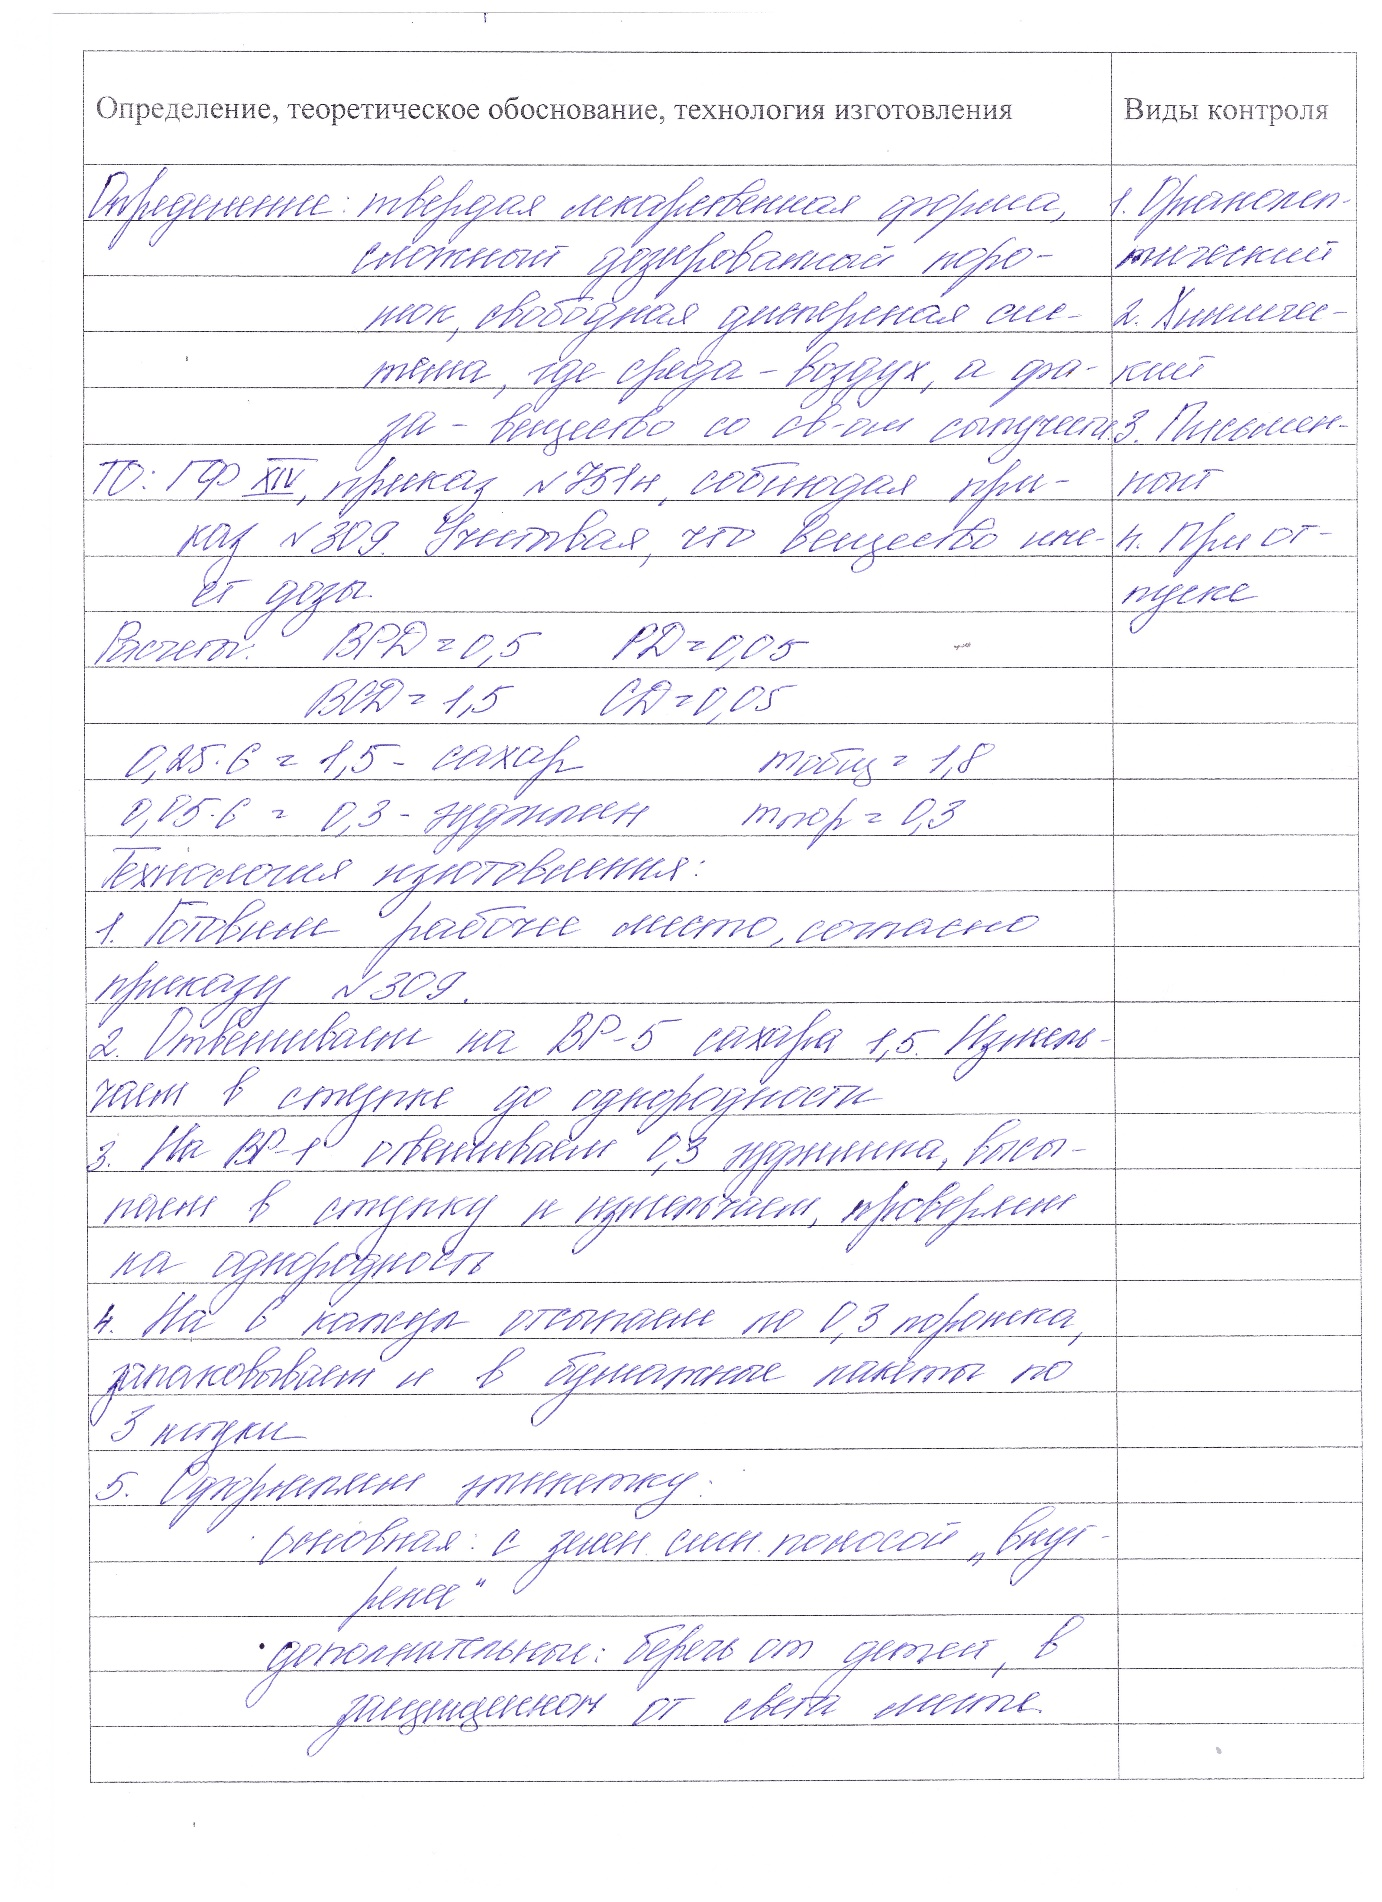 Определение, теоретическое обоснование, технология изготовления
Виды контроля
Определение: твердая лекарственная форма,
сложный дозированный поро-
шок, свободная дисперсная сис-
тема, где среда – воздух, а фа-
за – вещество со св-ом сыпучести.
ТО: ГФ XIV, приказ №751н, соблюдая при-
каз №309. Учитывая, что вещество име-
ет дозы.
Расчеты: ВРД = 0,5 РД = 0,05
ВСД = 1,5 СД = 0,05
0,25·6 = 1,5 - сахар mобщ = 1,8
0,05·6 = 0,3 - mпор = 0,3
Технология изготовления:
1. Готовим рабочее место, согласно
приказу №309.
2. Отвешиваем на ВР-5 сахара 1,5. Измель-
чаем в ступке до однородности
3. На ВР-1 отвешиваем 0,3 высы-
паем в ступку и измельчаем, проверяем
на однородность
4. На 6 капсул отсыпаем по 0,3 порошка,
запаковываем и в бумажные пакеты по
3 штуки
5. Оформляем этикетку:
· основная: с зелен. сигн. полосой „внут-
ренее“
· дополнительные: беречь от детей, в
защищенном от света месте.
1. Органолеп-
тический
2. Химичес-
кий
3. Письмен-
ный
4. При от-
пуске